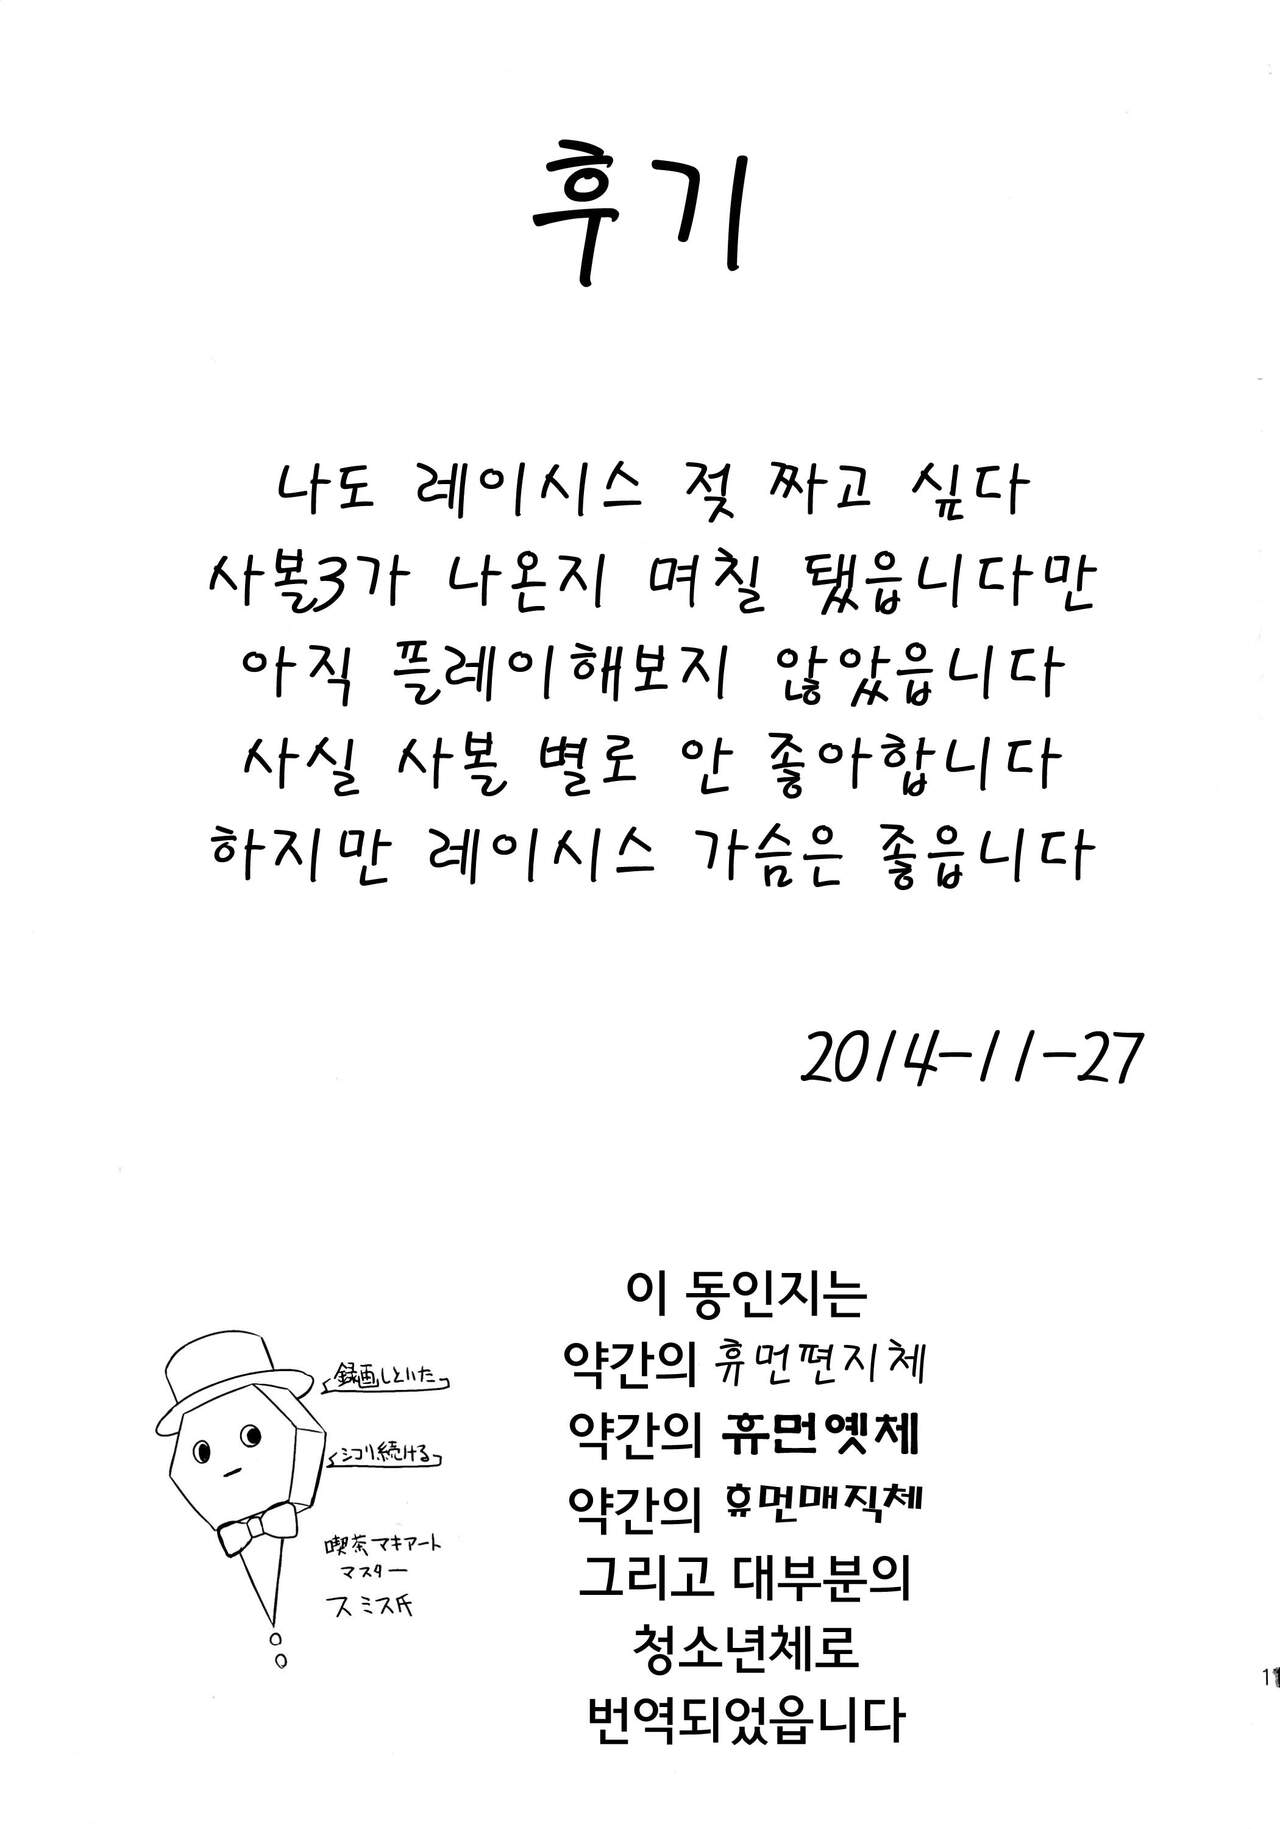 후기
나도 레이시스 젖 짜고 싶다
사볼3가 나온지 며칠 됐읍니다만
아직 플레이해보지 않았읍니다
사실 사볼 별로 안 좋아합니다
하지만 레이시스 가슴은 좋읍니다
2014-11-27
이 동인지는
약간의 휴먼편지체
약간의 휴먼옛체
약간의 휴먼매직체
그리고 대부분의
청소년체로
번역되었읍니다
録画しといた
シコリ続ける
喫茶マキアート
マスター
スミス氏